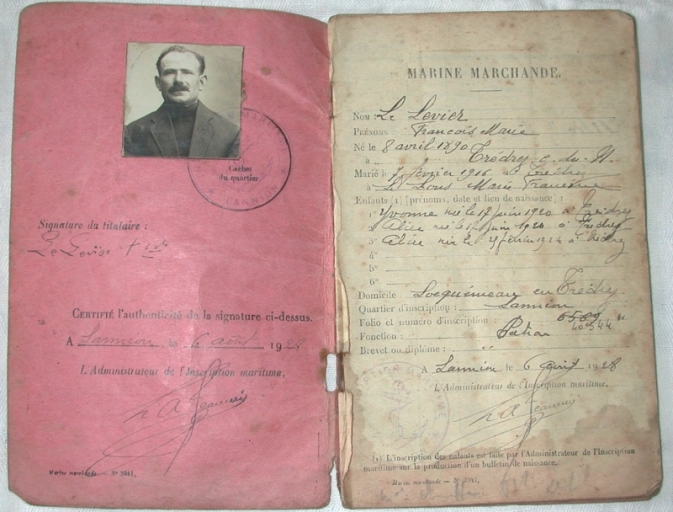 Cachet
du quartier
LANNION
Signature du titulaire :
Le Levier
CERTIFIÉ l'authenticité de la signature ci-dessus.
A Lannion le 6 août 1928
L'Administrateur de l'Inscription maritime,
MARINE MARCHANDE.
NOM : Le Levier
PRÉNOMS François Marie
Né le 8 avril 1890
à Trédrez C. du N.
Marié le 7 février 1916 à Trédrez
à Le Marie Françoise
Enfants (1) [prénoms, date et lieu de naissance] :
1° Yvonne née le 17 juin 1920 à Trédrez
2° Alice née le juin 1920 à Trédrez
3° née le février 1924 à Trédrez
4°
5°
6°
Domicile Locquémeau en Trédrez
Quartier d'inscription : Lannion
Folio et numéro d'inscription :
Fonction : Patron
Brevet ou diplôme : "
A Lannion le 6 août 1928
L'Administrateur de l'Inscription maritime,
(1) L'inscription des enfants est faite par l'Administrateur de l'Inscription
maritime sur la production d'un bulletin de naissance.